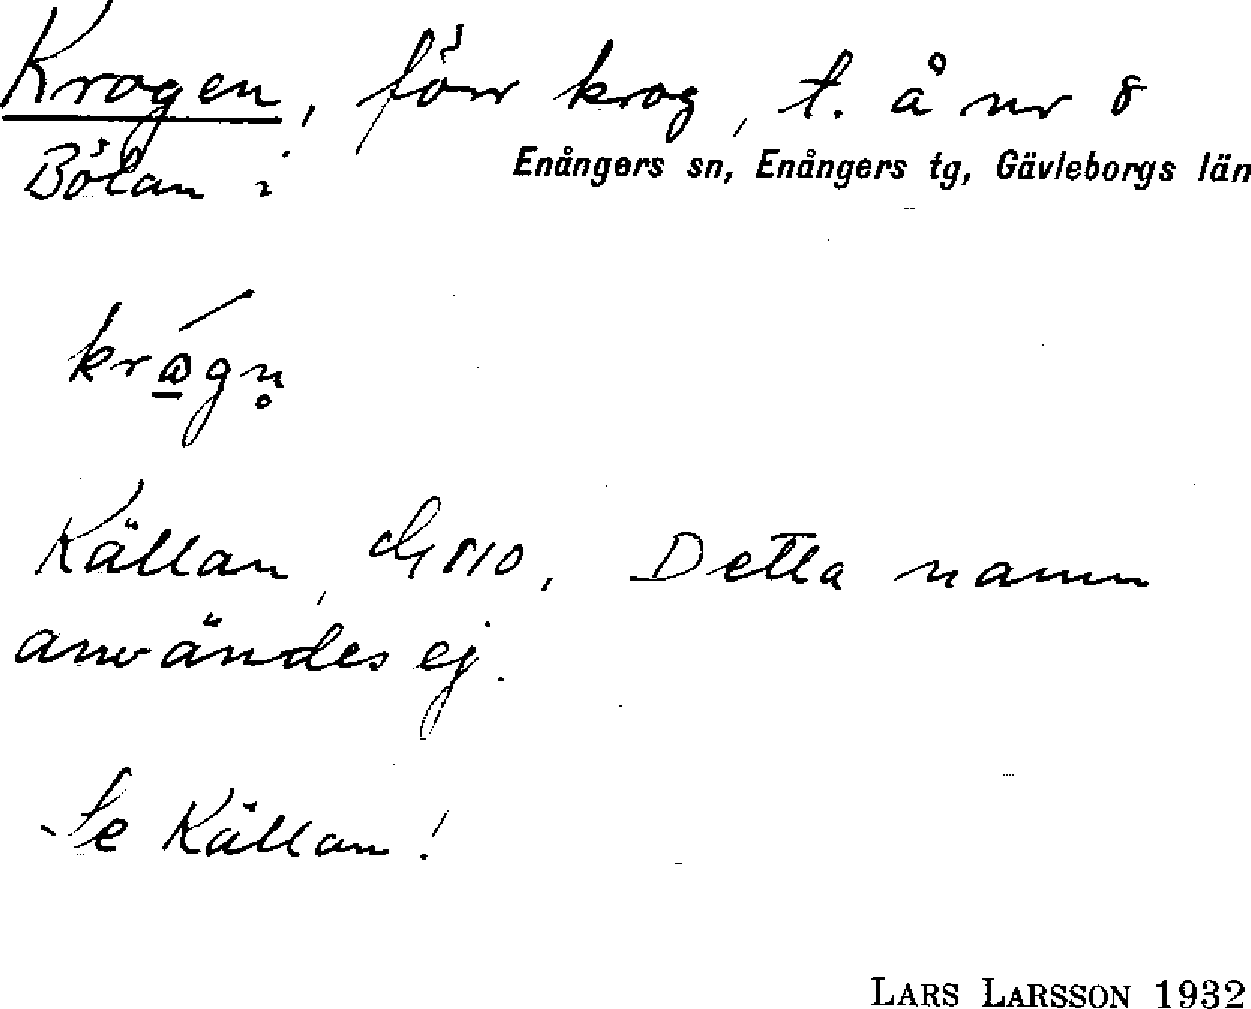 Krogen, förr krog, t. å nr 8
Bölan i
Enångers sn, Enångers tg, Gävleborgs län
krågn̥
Källan, 1810. Detta namn
användes ej.
Se Källan!
LARS LARSSON 1932